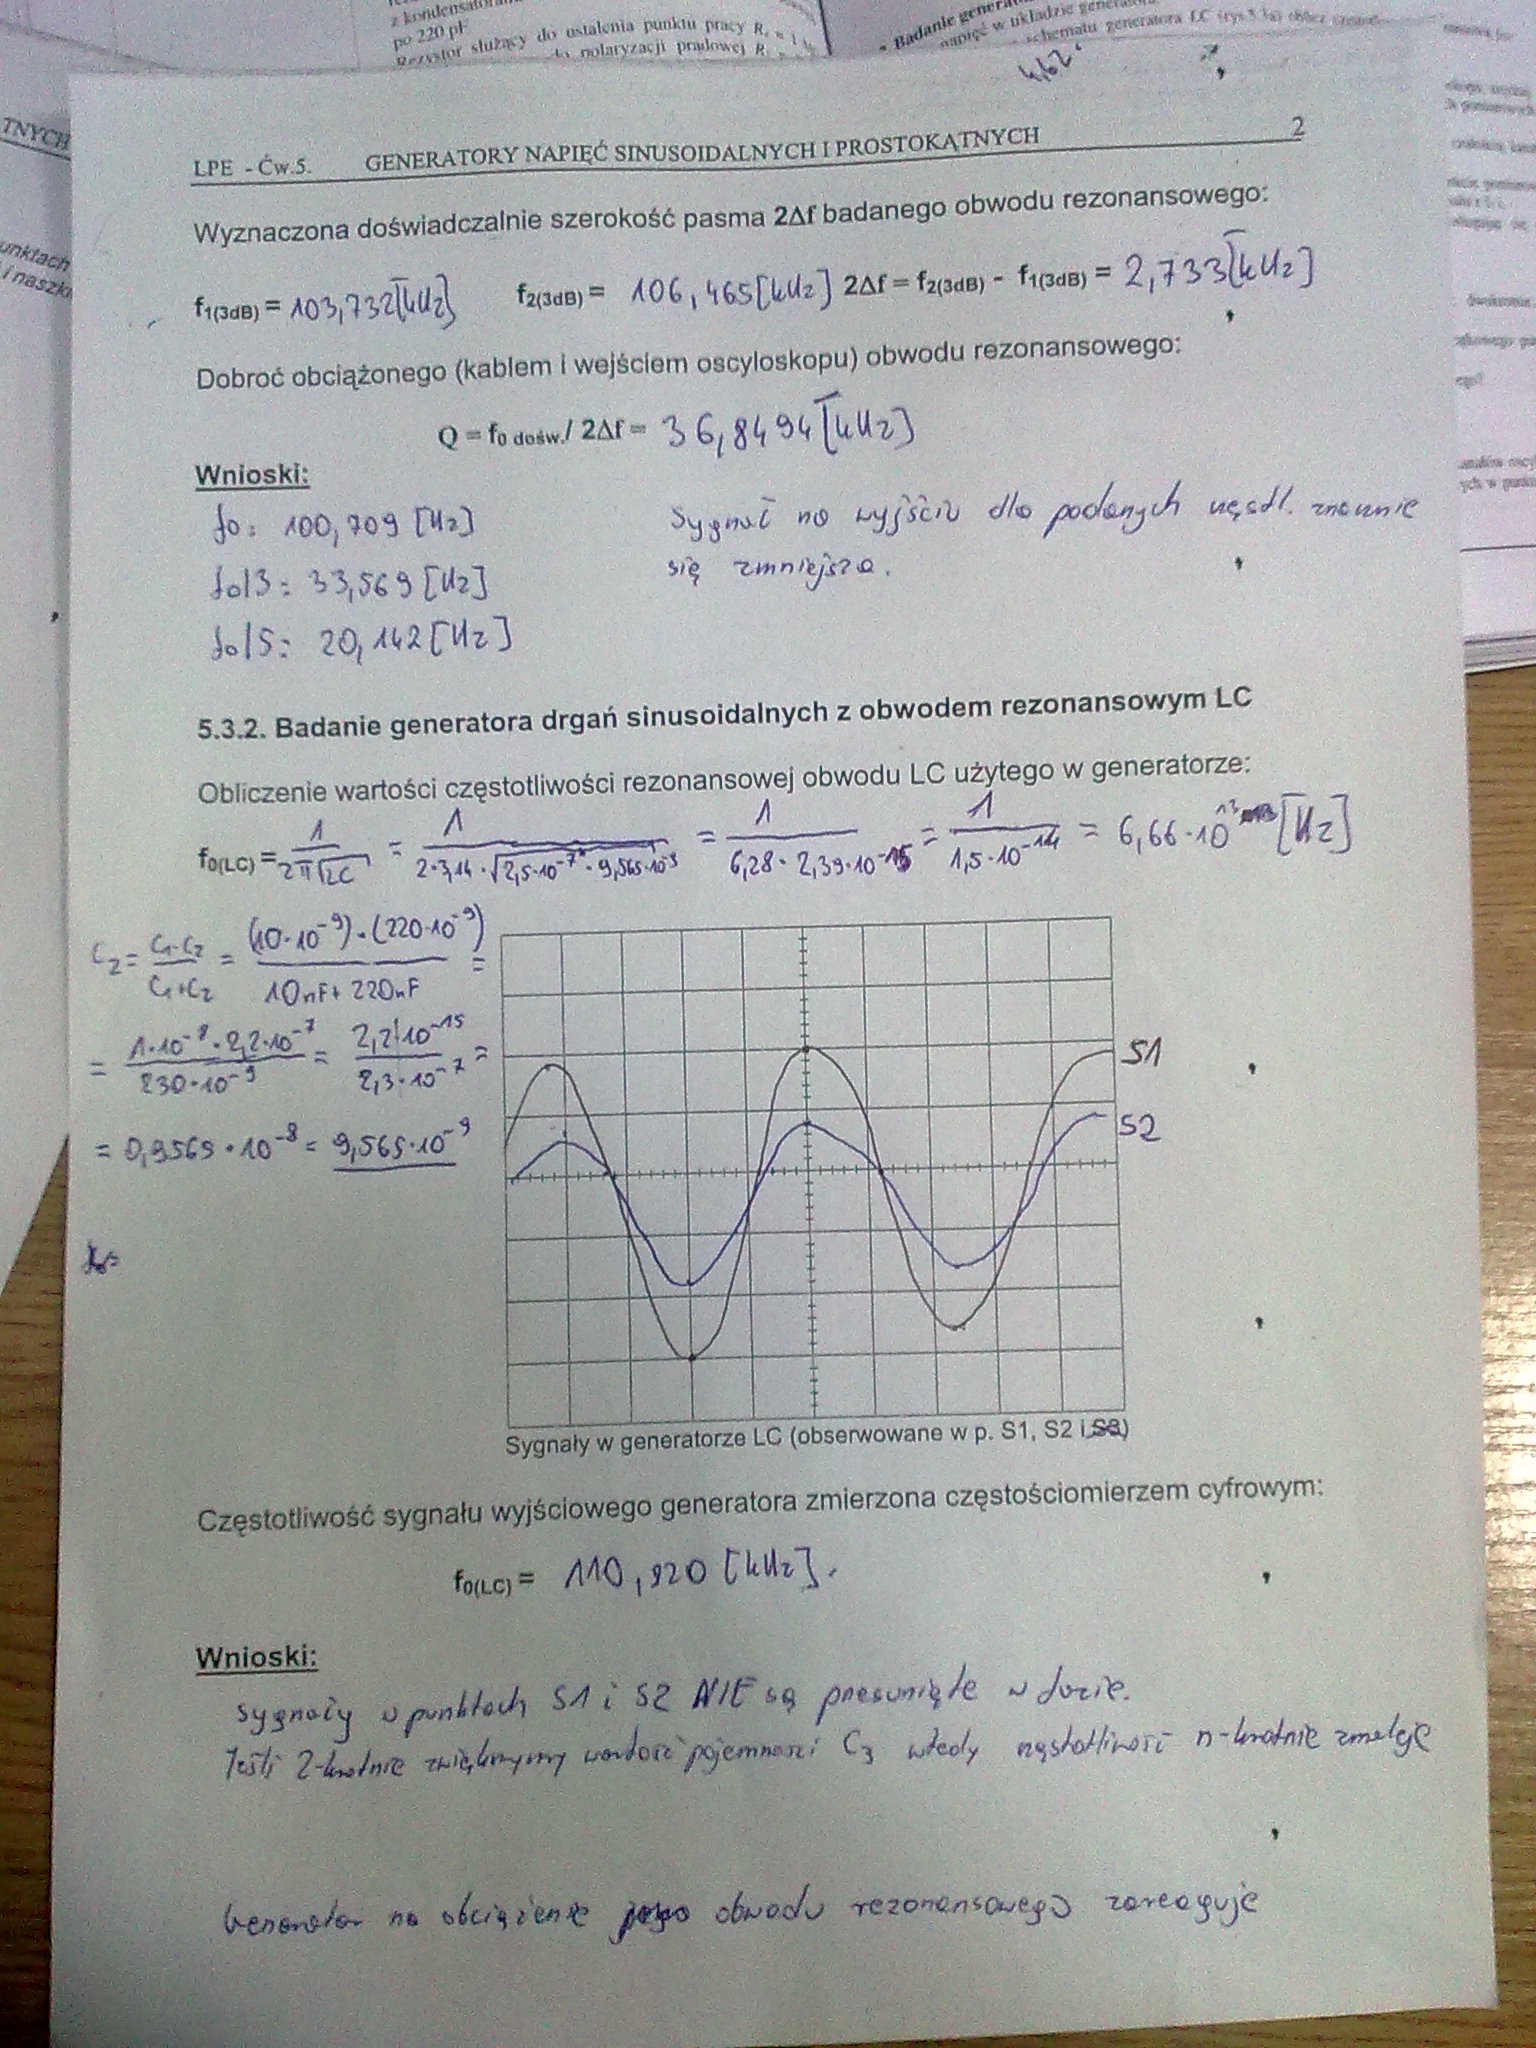 po 220 pF
Rezystor służący do ustalenia punktu pracy R
do polaryzacji prądowej R
Badanie genera
napięć w układzie
schematu generatora LC
4,62
TNYCH
unktach
LPE - Ćw.5. GENERATORY NAPIĘĆ SINUSOIDALNYCH I PROSTOKĄTNYCH 2
Wyznaczona doświadczalnie szerokość pasma 2Δf badanego obwodu rezonansowego:
f1(3dB) = 103,732 [kHz] f2(3dB) = 106,465 [kHz] 2Δf = f2(3dB) - f1(3dB) = 2,733 [kHz]
Dobroć obciążonego (kablem i wejściem oscyloskopu) obwodu rezonansowego:
Q = f0 dośw./ 2Δf = 36,8494 [kHz]
Wnioski:
fo: 100,709 [Hz] Sygnał na wyjściu dla podanych częstl. znacznie
fo/3: 33,569 [Hz] się zmniejsza.
fo/5: 20,142 [Hz]
5.3.2. Badanie generatora drgań sinusoidalnych z obwodem rezonansowym LC
Obliczenie wartości częstotliwości rezonansowej obwodu LC użytego w generatorze:
f0(LC) = 1/2π√LC = 1/2·3,14·√2,5·10^-7·9,565·10^-9 = 1/6,28·2,39·10^-15 = 1/1,5·10^-14 = 6,66·10^13 [Hz]
Cz = C1·C2/C1+C2 = (10·10^-9)·(220·10^-9)/10nF+220nF =
= 1·10^-8·2,2·10^-7/230·10^-9 = 2,2·10^-15/2,3·10^-7 =
= 0,9565·10^-8 = 9,565·10^-9
S1
S2
Sygnały w generatorze LC (obserwowane w p. S1, S2 i S3)
Częstotliwość sygnału wyjściowego generatora zmierzona częstościomierzem cyfrowym:
f0(LC) = 110,920 [kHz].
Wnioski:
Sygnały w punktach S1 i S2 NIE są przesunięte w fazie.
Jeśli 2-krotnie zwiększymy wartość pojemności C3 wtedy częstotliwość n-krotnie zmaleje
Generator na obciążenie jego obwodu rezonansowego zareaguje